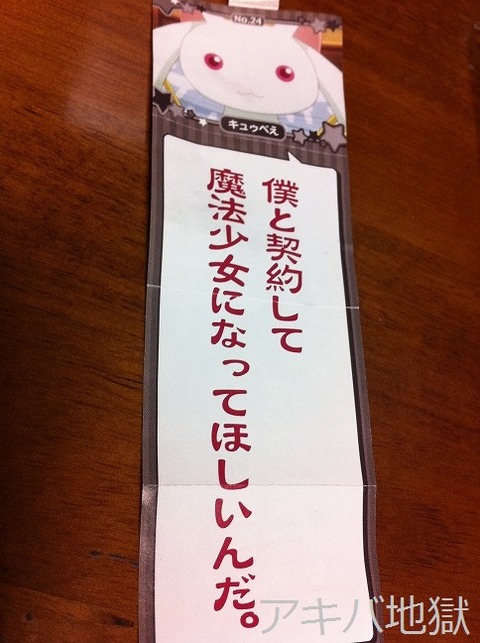 No.24
キュゥべえ
僕と契約して
魔法少女になってほしいんだ。
アキバ地獄